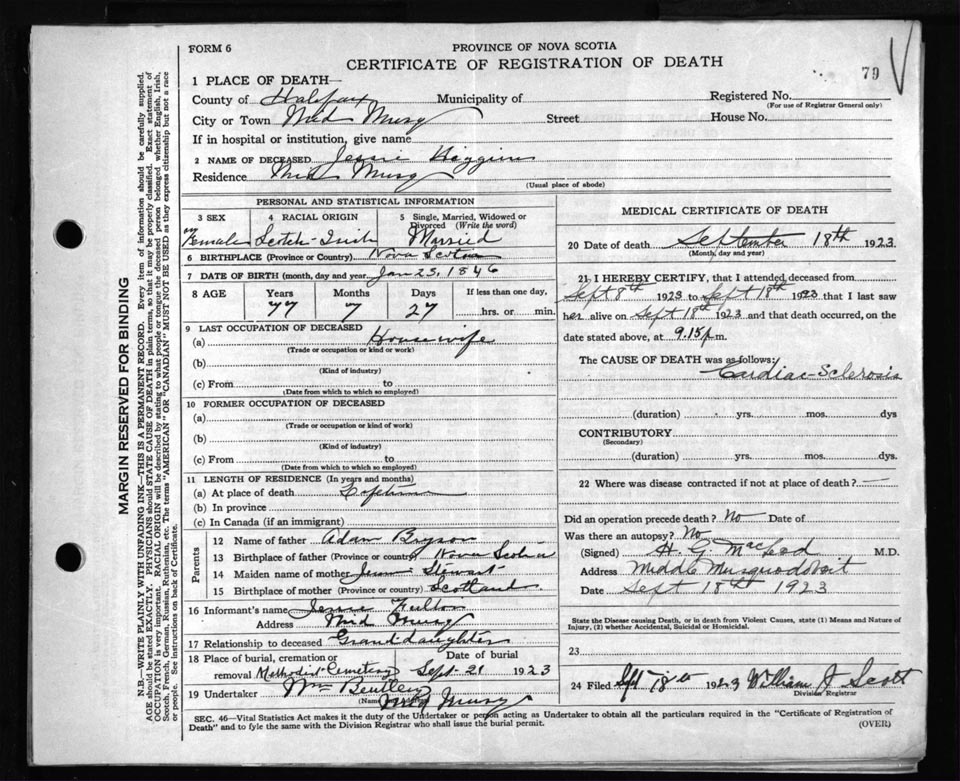 FORM 6
PROVINCE OF NOVA SCOTIA
CERTIFICATE OF REGISTRATION OF DEATH
79
1 PLACE OF DEATH—
County of Halifax Municipality of
Registered No.
(For use of Registrar General only)
City or Town Mid Musq Street House No.
If in hospital or institution, give name
2 NAME OF DECEASED Jessie Higgins
Residence Mid Musq
(Usual place of abode)
PERSONAL AND STATISTICAL INFORMATION
3 SEX
Female
4 RACIAL ORIGIN
Scotch-Irish
5 Single, Married, Widowed or
Divorced (Write the word)
Married
6 BIRTHPLACE (Province or Country) Nova Scotia
7 DATE OF BIRTH (month, day and year) Jan 23, 1846
8 AGE Years Months Days If less than one day,
77 7 27 hrs. or min.
9 LAST OCCUPATION OF DECEASED
(a) Housewife
(Trade or occupation or kind or work)
(b)
(Kind of industry)
(c) From to
(Date from which to which so employed)
10 FORMER OCCUPATION OF DECEASED
(a)
(Trade or occupation or kind of work)
(b)
(Kind of industry)
(c) From to
(Date from which to which so employed)
11 LENGTH OF RESIDENCE (In years and months)
(a) At place of death
(b) In province
(c) In Canada (if an immigrant)
Parents
12 Name of father Adam Bryson
13 Birthplace of father (Province or country) Nova Scotia
14 Maiden name of mother Stewart
15 Birthplace of mother (Province or country) Scotland
16 Informant's name Jessie Fulton
Address Mid Musq
17 Relationship to deceased Granddaughter
18 Place of burial, cremation or removal Methodist Cemetery
Date of burial Sept. 21 1923
19 Undertaker Wm Bentley
(Name) Mid Musq
MEDICAL CERTIFICATE OF DEATH
20 Date of death September 18th 1923
(Month, day and year)
21 I HEREBY CERTIFY, that I attended deceased from
Sept 8th 1923 to Sept 18th 1923 that I last saw
her alive on Sept 18th 1923 and that death occurred, on the
date stated above, at 9.15 p.m.
The CAUSE OF DEATH was as follows:
Cardiac-Sclerosis
(duration) yrs. mos. dys
CONTRIBUTORY
(Secondary)
(duration) yrs. mos. dys.
22 Where was disease contracted if not at place of death?
Did an operation precede death? No Date of
Was there an autopsy? No
(Signed) H. G. MacLeod M.D.
Address Middle Musquodoboit
Date Sept 18th 1923
State the Disease causing Death, or in death from Violent Causes, state (1) Means and Nature of
Injury, (2) whether Accidental, Suicidal or Homicidal.
23
24 Filed Sept 18th 1923 William J Scott
Division Registrar
SEC. 46—Vital Statistics Act makes it the duty of the Undertaker or person acting as Undertaker to obtain all the particulars required in the "Certificate of Registration of
Death" and to fyle the same with the Division Registrar who shall issue the burial permit.
(OVER)
MARGIN RESERVED FOR BINDING
N.B.—WRITE PLAINLY WITH UNFADING INK—THIS IS A PERMANENT RECORD. Every item of information should be carefully supplied.
AGE should be stated EXACTLY. PHYSICIANS should STATE CAUSE OF DEATH in plain terms, so that it may be properly classified. Exact statement of
OCCUPATION is very important. RACIAL ORIGIN will be described by stating to what people or tongue the deceased person belonged whether English, Irish,
Scotch, French, German, Russian, Ruthenian, etc. The terms "AMERICAN" OR "CANADIAN" MUST NOT BE USED as they express citizenship but not a race
or people. See instructions on back of Certificate.